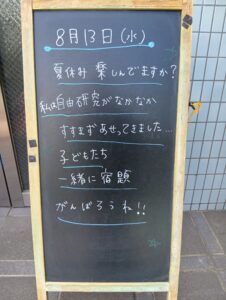 8月13日(水)
夏休み 楽しんでますか?
私は自由研究がなかなか
すすまずあせってきました…
子どもたち
一緒に宿題
がんばろうね!!